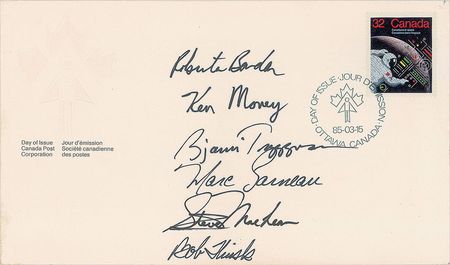 32 Canada
DAY OF ISSUE · JOUR D'ÉMISSION
OTTAWA, CANADA
85-03-15
Roberta Bondar
Ken Money
Bjarni Tryggvason
Marc Garneau
Steve MacLean
Bob Thirsk
Day of Issue Jour d'émission
Canada Post Société canadienne
Corporation des postes